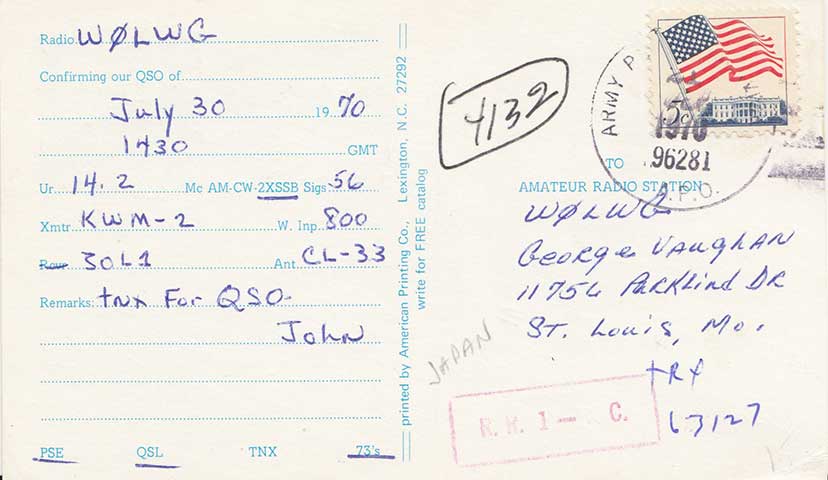 Radio WØLWG
Confirming our QSO of
July 30 1970
1430 GMT
Ur 14.2 Mc AM-CW-2XSSB Sigs 56
Xmtr KWM-2 W. Inp. 800
30L1 Ant CL-33
Remarks: tnx For QSO
John
PSE QSL TNX 73's
printed by American Printing Co., Lexington, N.C. 27292
write for FREE catalog
4132
5c
ARMY P
1970
96281
A.P.O.
TO
AMATEUR RADIO STATION
WØLWG
George Vaughan
11756 Parklind Dr
St. Louis, Mo.
63127
JAPAN